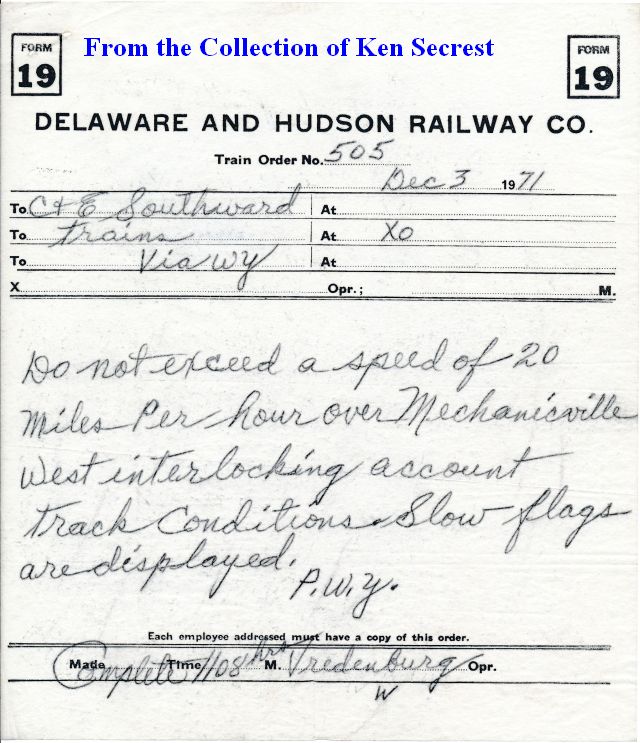 From the Collection of Ken Secrest
FORM 19
FORM 19
DELAWARE AND HUDSON RAILWAY CO.
Train Order No. 505
Dec 3 1971
To C & E Southward At
To Trains At XO
To Via WY At
X Opr.; M.
Do not exceed a speed of 20
Miles Per hour over Mechanicville
West interlocking account
Track Conditions. Slow flags
are displayed.
P.W.Y.
Each employee addressed must have a copy of this order.
Made Complete Time 1108 hrs M. Vredenburg Opr.
W